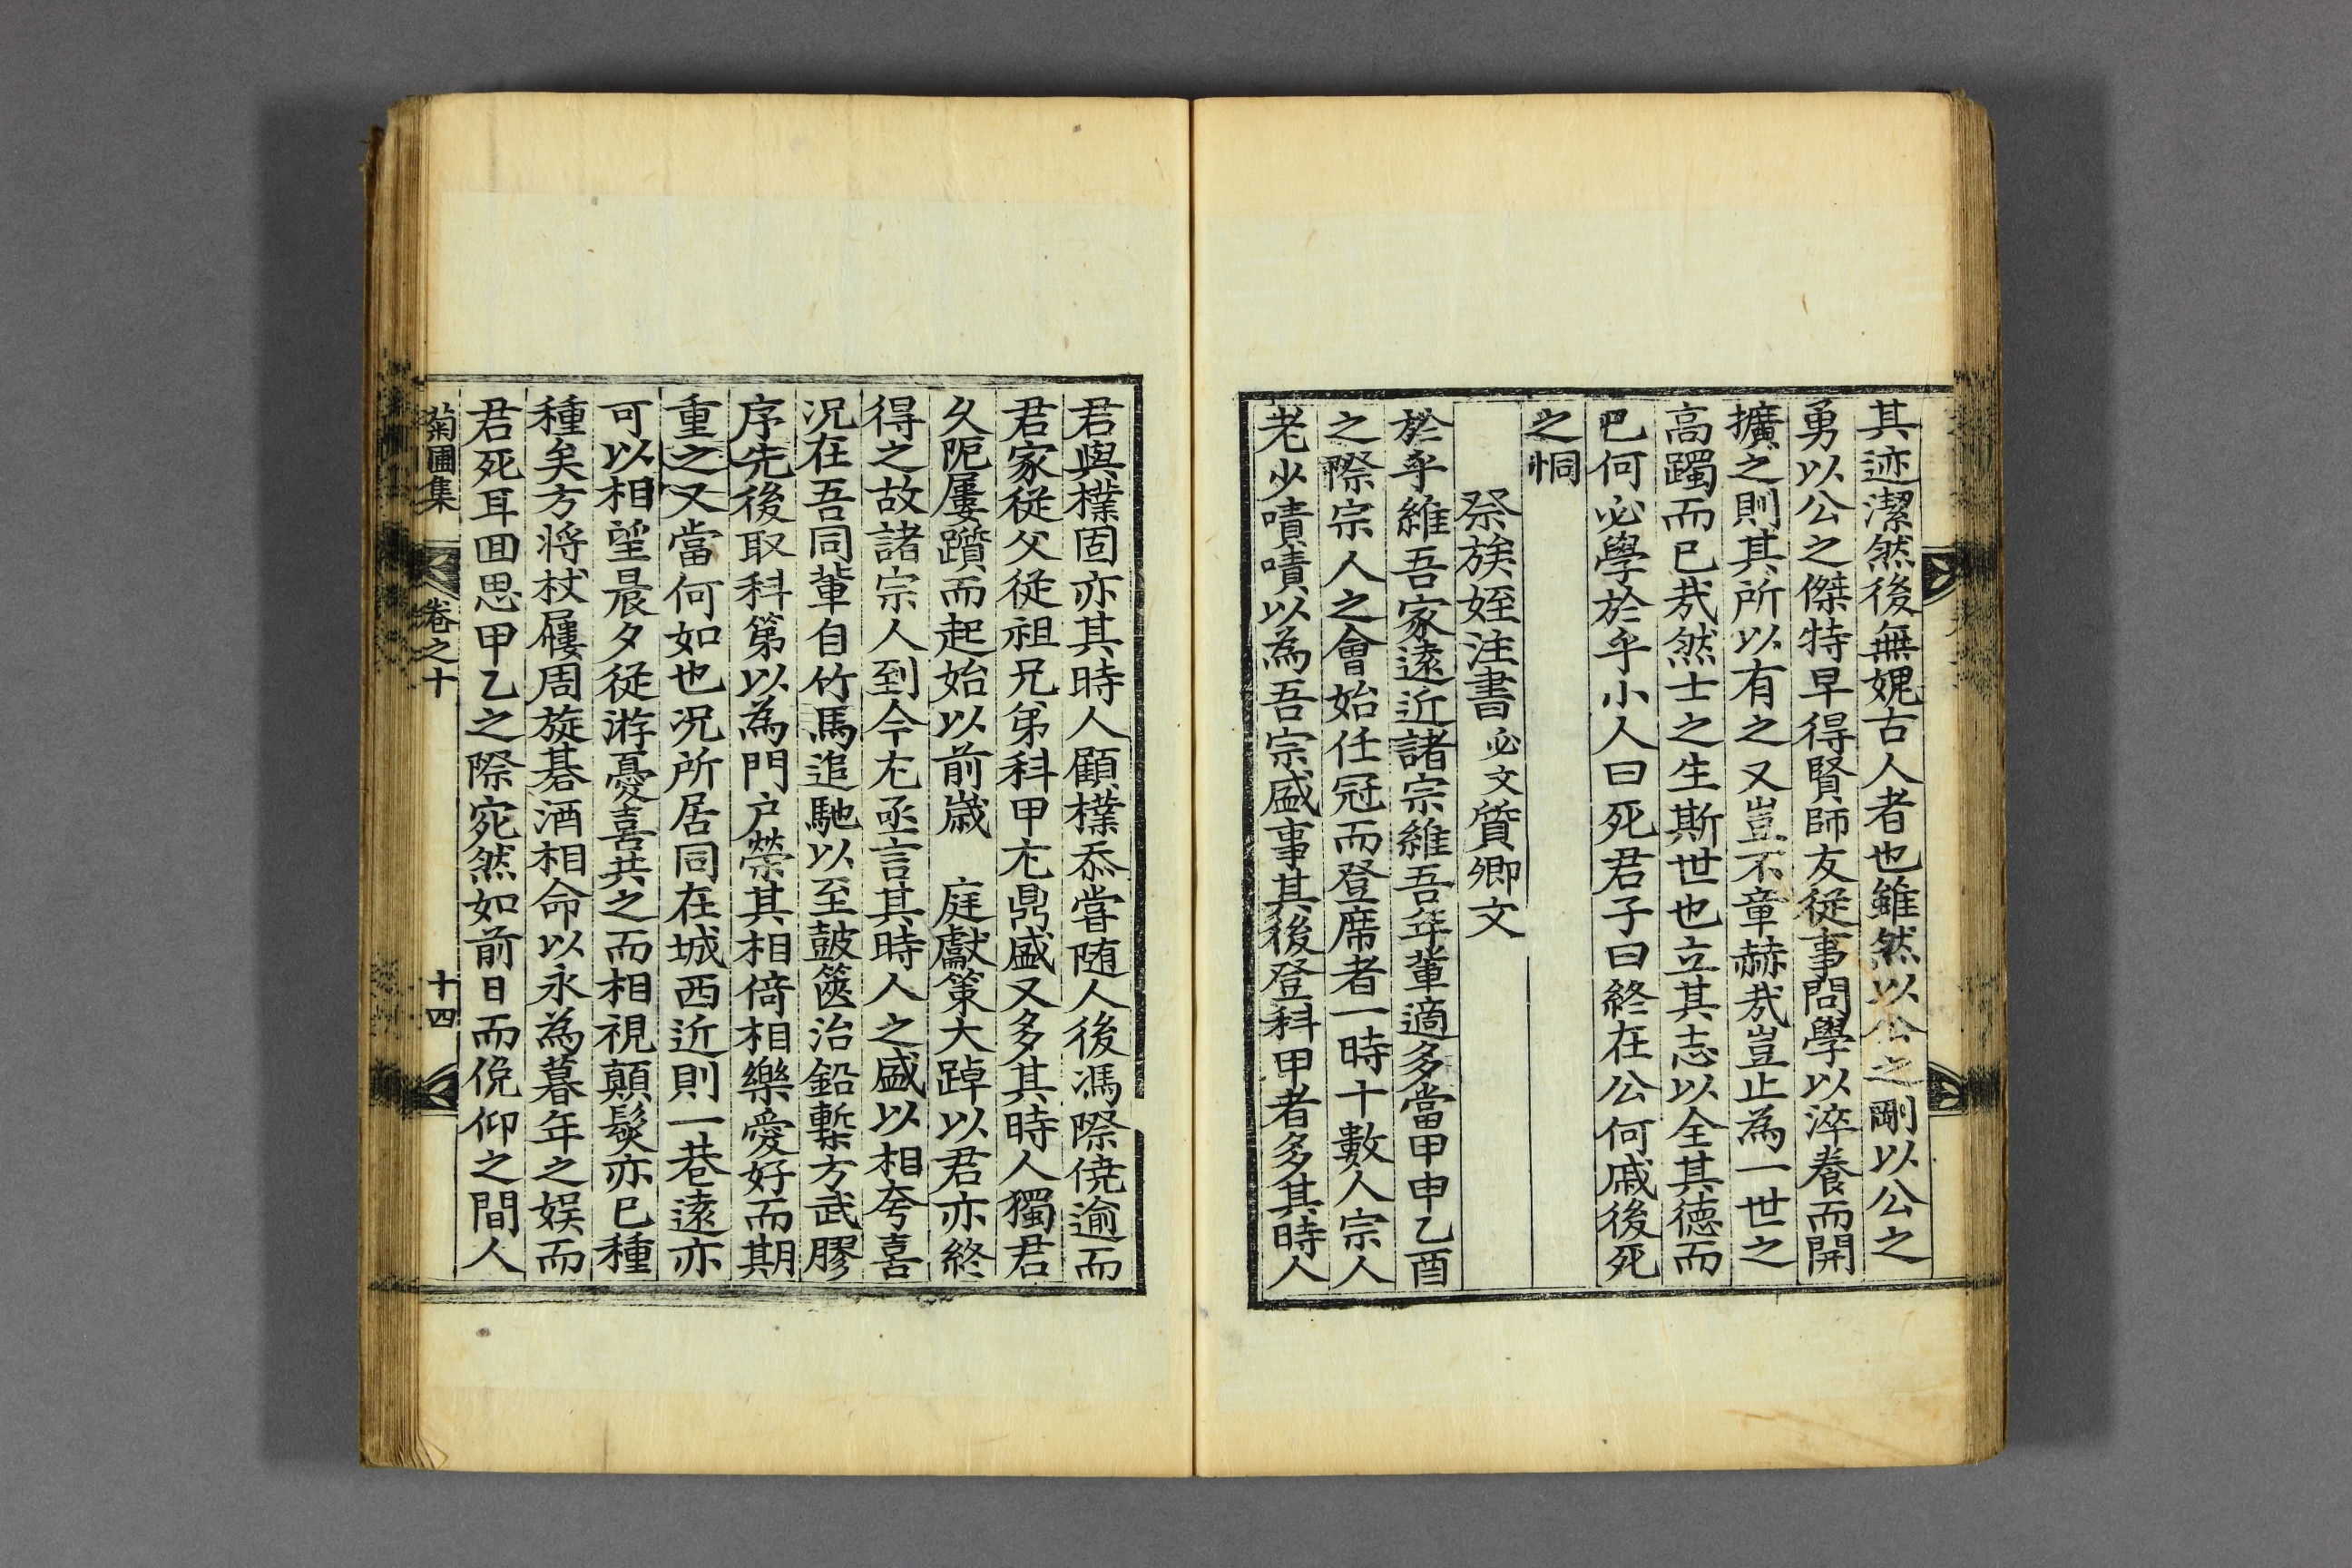 其迹潔然後無媿古人者也雖然以公之剛以公之
勇以公之傑特早得賢師友從事問學以淬養而開
擴之則其所以有之又豈不章赫㦲豈止為一世之
高躅而已㦲然士之生斯世也立其志以全其德而
已何必學於乎小人曰死君子曰終在公何戚後死
之恫
祭族姪注書必文質卿文
於乎維吾家遠近諸宗維吾年軰適多當甲申乙酉
之際宗人之會始任冠而登席者一時十數人宗人
老少嘖嘖以為吾宗盛事其後登科甲者多其時人
君與樸固亦其時人顧樸忝甞随人後馮際僥逾而
君家從父從祖兄弟科甲尢鼎盛又多其時人獨君
久阨屢躓而起始以前歲 庭獻策大踔以君亦終
得之故諸宗人到今尢亟言其時人之盛以相夸喜
况在吾同軰自竹馬追馳以至鼓篋治鉛槧方武膠
序先後取科第以為門户榮其相倚相樂愛好而期
重之又當何如也况所居同在城西近則一巷遠亦
可以相望晨夕從游憂喜共之而相視顛鬓亦已種
種矣方将杖屨周旋碁酒相命以永為暮年之娱而
君死耳囬思甲乙之際宛然如前日而俛仰之間人
菊圃集 卷之十 十四